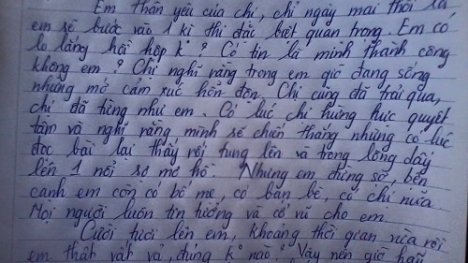 Em thân yêu của chị, chỉ ngày mai thôi là
em sẽ bước vào 1 kì thi đặc biệt quan trọng. Em có
lo lắng hồi hộp k° ? Có tin là mình thành công
không em ? Chị nghĩ rằng trong em giờ đang sống
những mớ cảm xúc hỗn độn. Chị cũng đã trải qua,
chị đã từng như em. Có lúc chị hừng hực quyết
tâm và nghĩ rằng mình sẽ chiến thắng nhưng có lúc
đọc bài lại thấy rối tung lên và trong lòng dấy
lên 1 nỗi sợ mơ hồ. Nhưng em đừng sợ, bên
cạnh em còn có bố mẹ, có bạn bè, có chị nữa
Mọi người luôn tin tưởng và cổ vũ cho em.
Cười tươi lên em, khoảng thời gian vừa rồi
em thật vất vả, đúng k° nào ? Vậy nên giờ hãy